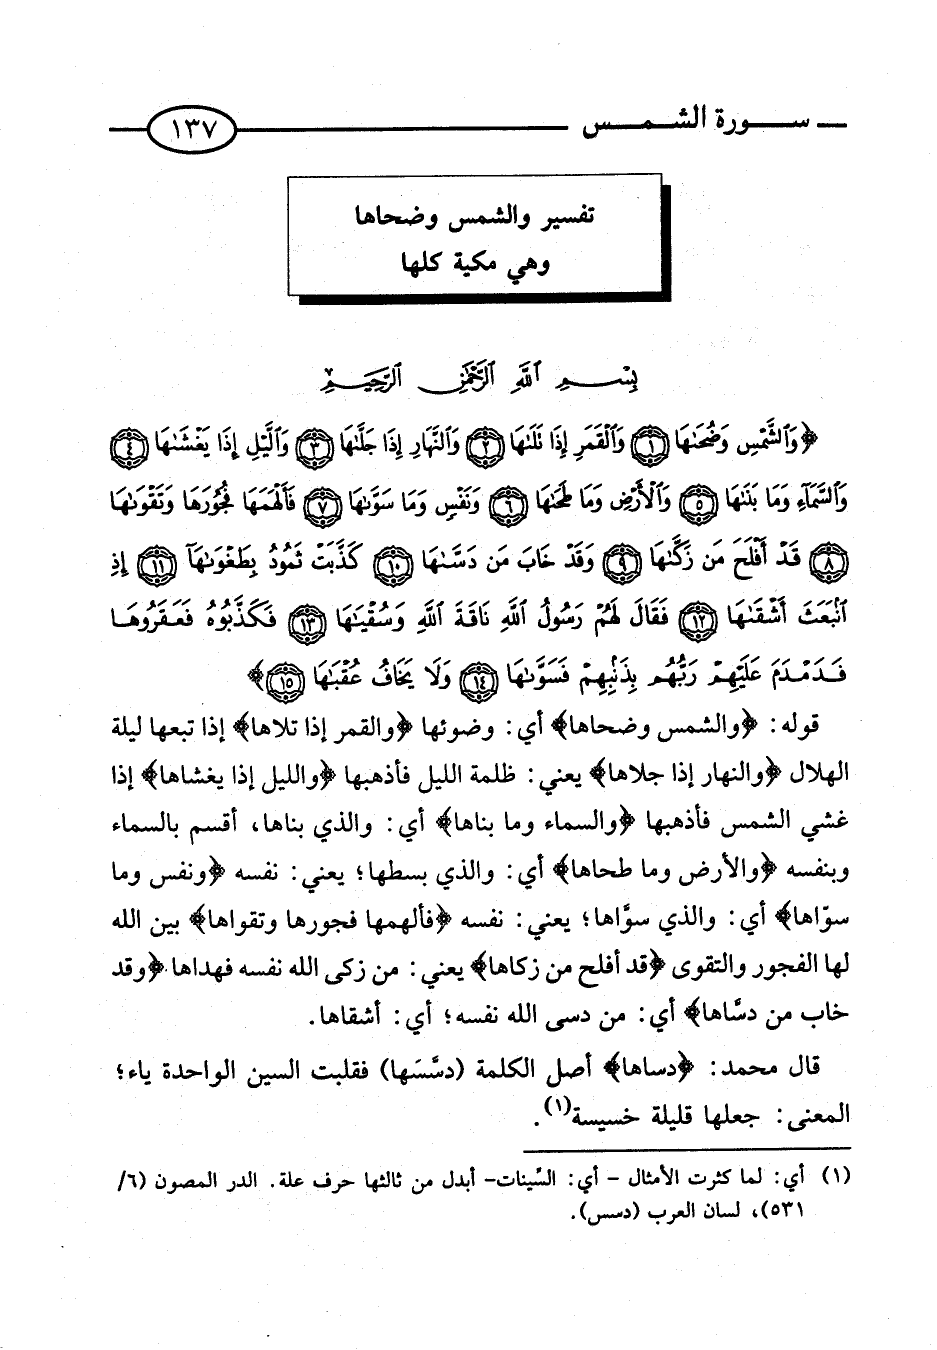 سورة الشمس ١٣٧
تفسير والشمس وضحاها
وهي مكية كلها
بِسْمِ ٱللَّهِ ٱلرَّحْمَٰنِ ٱلرَّحِيمِ
﴿وَٱلشَّمْسِ وَضُحَىٰهَا ١ وَٱلْقَمَرِ إِذَا تَلَىٰهَا ٢ وَٱلنَّهَارِ إِذَا جَلَّىٰهَا ٣ وَٱلَّيْلِ إِذَا يَغْشَىٰهَا ٤
وَٱلسَّمَآءِ وَمَا بَنَىٰهَا ٥ وَٱلْأَرْضِ وَمَا طَحَىٰهَا ٦ وَنَفْسٍ وَمَا سَوَّىٰهَا ٧ فَأَلْهَمَهَا فُجُورَهَا وَتَقْوَىٰهَا
٨ قَدْ أَفْلَحَ مَن زَكَّىٰهَا ٩ وَقَدْ خَابَ مَن دَسَّىٰهَا ١٠ كَذَّبَتْ ثَمُودُ بِطَغْوَىٰهَآ ١١ إِذِ
ٱنۢبَعَثَ أَشْقَىٰهَا ١٢ فَقَالَ لَهُمْ رَسُولُ ٱللَّهِ نَاقَةَ ٱللَّهِ وَسُقْيَٰهَا ١٣ فَكَذَّبُوهُ فَعَقَرُوهَا
فَدَمْدَمَ عَلَيْهِمْ رَبُّهُم بِذَنۢبِهِمْ فَسَوَّىٰهَا ١٤ وَلَا يَخَافُ عُقْبَٰهَا ١٥﴾
قوله: ﴿والشمس وضحاها﴾ أي: وضوئها ﴿والقمر إذا تلاها﴾ إذا تبعها ليلة
الهلال ﴿والنهار إذا جلاها﴾ يعني: ظلمة الليل فأذهبها ﴿والليل إذا يغشاها﴾ إذا
غشي الشمس فأذهبها ﴿والسماء وما بناها﴾ أي: والذي بناها، أقسم بالسماء
وبنفسه ﴿والأرض وما طحاها﴾ أي: والذي بسطها؛ يعني: نفسه ﴿ونفس وما
سوّاها﴾ أي: والذي سوَّاها؛ يعني: نفسه ﴿فألهمها فجورها وتقواها﴾ بين الله
لها الفجور والتقوى ﴿قد أفلح من زكاها﴾ يعني: من زكى الله نفسه فهداها ﴿وقد
خاب من دسَّاها﴾ أي: من دسى الله نفسه؛ أي: أشقاها.
قال محمد: ﴿دساها﴾ أصل الكلمة (دسَّسَها) فقلبت السين الواحدة ياء؛
المعنى: جعلها قليلة خسيسة(١).
(١) أي: لما كثرت الأمثال - أي: السِّينات- أبدل من ثالثها حرف علة. الدر المصون (٦/
٥٣١)، لسان العرب (دسس).